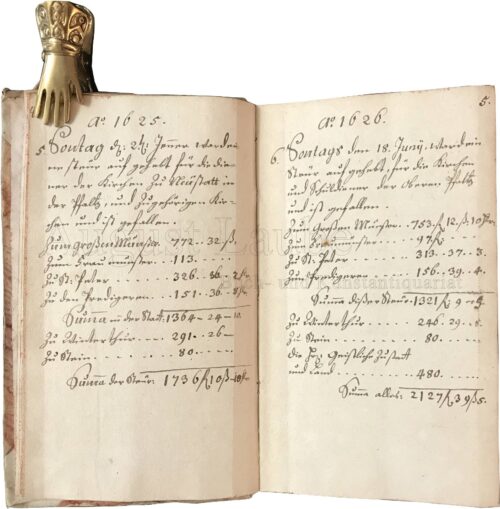 Aº 1625.
5. Sontag dz. 24. Jenner ward ein
ne steür auf gehebt für die die-
ner der Kirchen zu Neüstatt in
der Pfaltz, und zugehörigen Kir-
chen und ist gefallen.
Zum großen Münster. 772 .. 32 ß.
Zum Frau münster .. 113 ....
Zu St: Peter ...... 326 .. 36 .. 2
Zu den Predigeren .... 151 .. 36 .. 8
Summa in der Statt: 1364 - 24 - 10.
Zu Winterthur ..... 291 .. 26 -
Zu Stein ........ 80 .....
Summa der Steür: 1736 10 ß 10
5.
Aº 1626.
6. Sontags den 18. Juny, ward ein
Steür auf gehebt, für die Kirchen
und Schuldiener der Oberen Pfaltz
und ist gefallen.
Zum Großen Münster. 753 12 ß 10
Zum Frau münster .... 97
Zu St: Peter ........ 313 .. 37 .. 3.
Zun Predigeren ..... 156 .. 39 .. 4.
Summa dißer Steür 1321 9
Zu Winterthur ...... 246 .. 29 .. 8.
Zu Stein ......... 80 ......
die Geistliche zu Statt
und Land ........ 480 .....
Summa alles: 2127 39 ß 5.